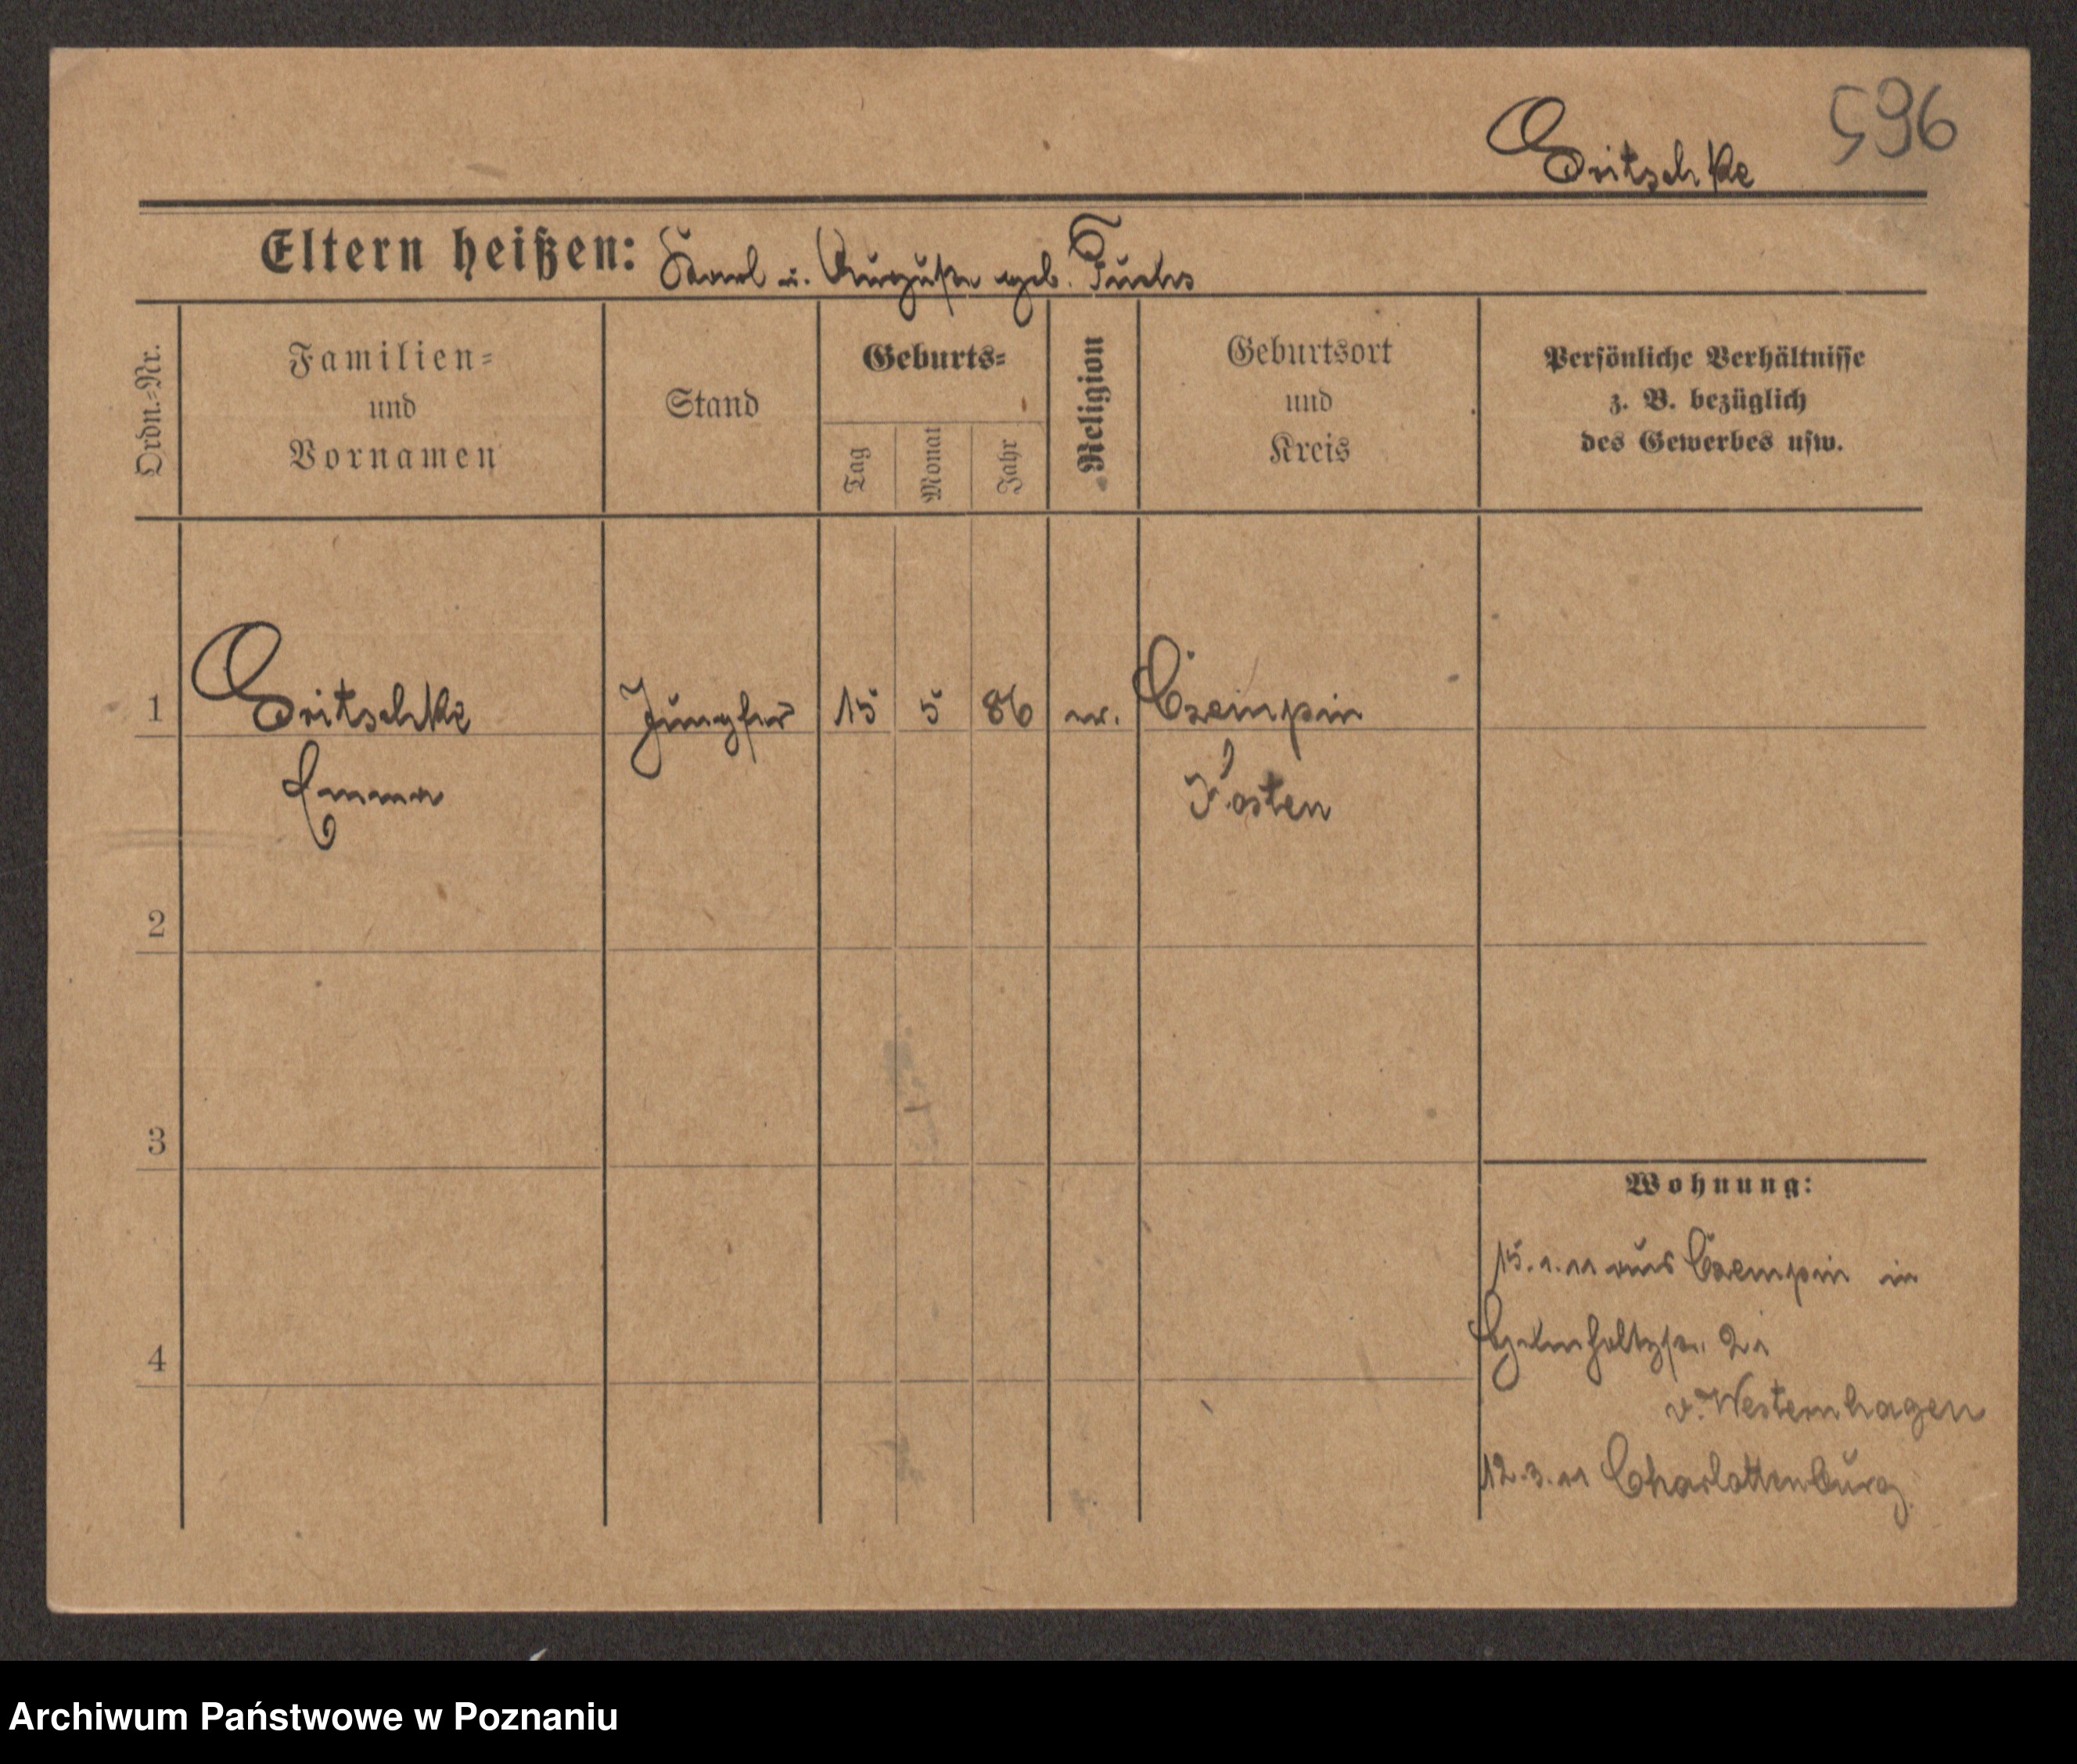 Gritschke 596
Eltern heißen: Karl u. Auguste geb. Fuchs
Ordn.-Nr.
Familien-
und
Vornamen
Stand
Geburts-
Tag
Monat
Jahr
Religion
Geburtsort
und
Kreis
Persönliche Verhältnisse
z. B. bezüglich
des Gewerbes usw.
1 Gritschke Jungfer 15 5 86 ev. Czempin
Emma Kosten
2
3
Wohnung:
15.1.11 aus Czempin in
4
v. Westernhagen
12.3.11 Charlottenburg
Archiwum Państwowe w Poznaniu